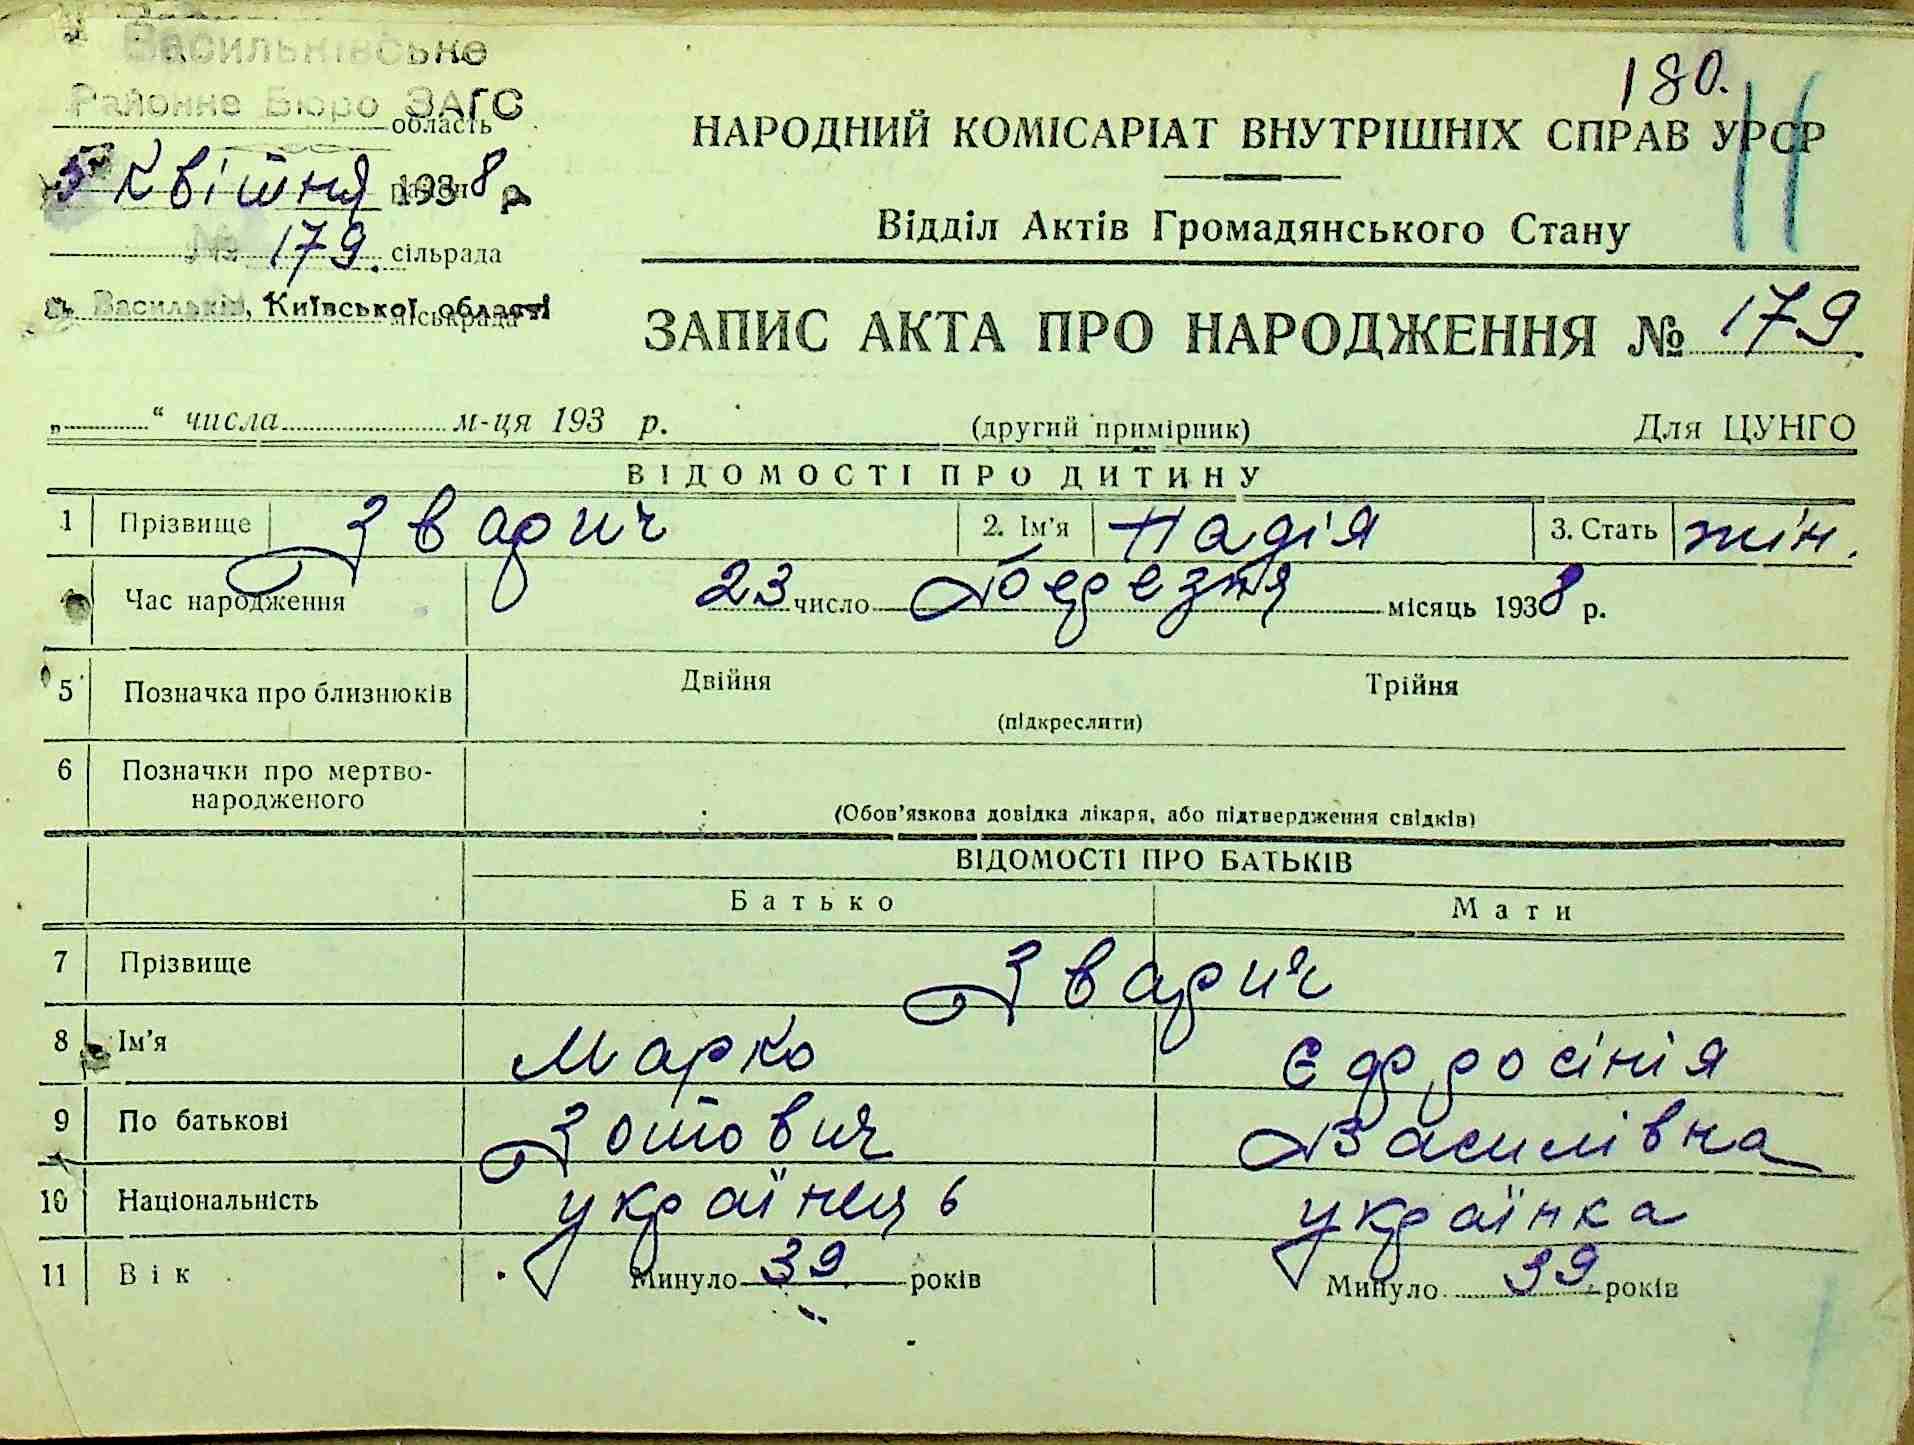 Васильківське
Районне Бюро ЗАГС
область
5 квітня 1938 р.
район
№ 179. сільрада
м. Васильків, Київської області
міськрада
180.
НАРОДНИЙ КОМІСАРІАТ ВНУТРІШНІХ СПРАВ УРСР
Відділ Актів Громадянського Стану
ЗАПИС АКТА ПРО НАРОДЖЕННЯ № 179.
„ “ числа м-ця 193 р. (другий примірник) Для ЦУНГО
ВІДОМОСТІ ПРО ДИТИНУ
1 Прізвище Зварич 2. Ім'я Надія 3. Стать жін.
Час народження 23 число Березня місяць 1938 р.
5 Позначка про близнюків Двійня Трійня
(підкреслити)
6 Позначки про мертво-
народженого
(Обов'язкова довідка лікаря, або підтвердження свідків)
ВІДОМОСТІ ПРО БАТЬКІВ
Батько Мати
7 Прізвище Зварич
8 Ім'я Марко Єфросінія
9 По батькові Зотович Василівна
10 Національність українець українка
11 Вік Минуло 39 років Минуло 39 років